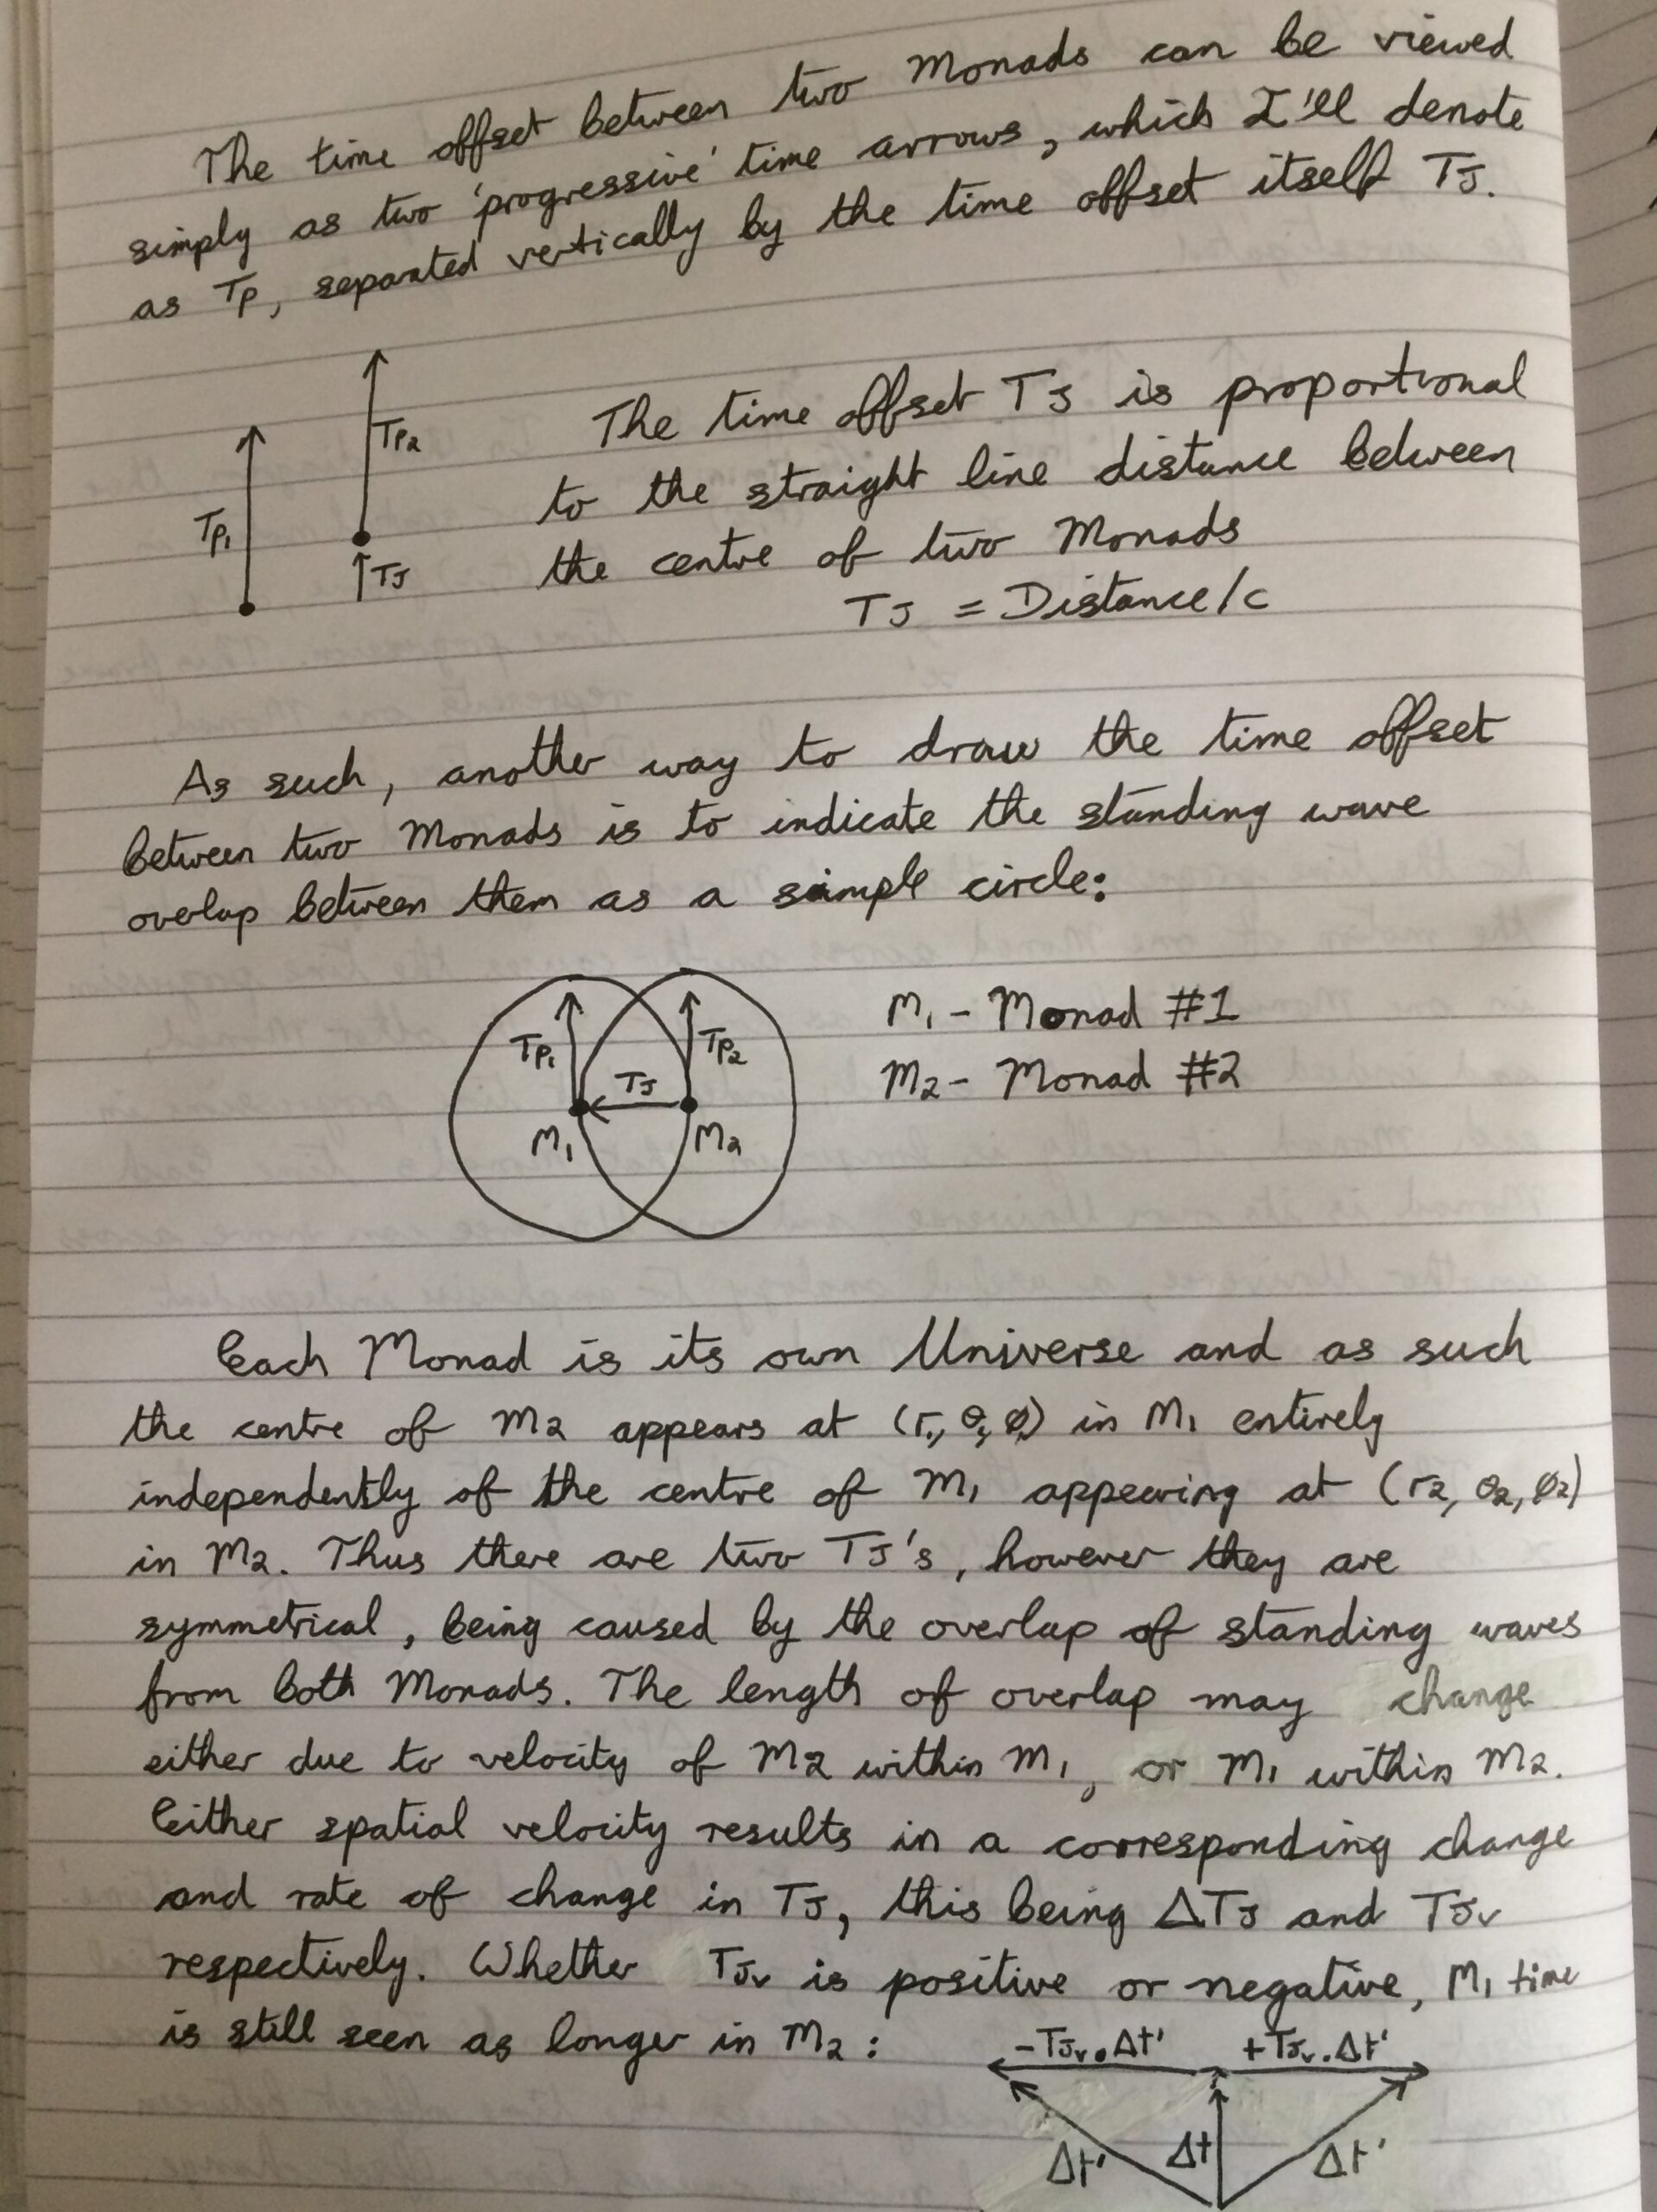 The time offset between two Monads can be viewed
simply as two 'progressive' time arrows, which I'll denote
as TP, separated vertically by the time offset itself TJ.
TP1
TP2
TJ
The time offset TJ is proportional
to the straight line distance between
the centre of two Monads
TJ = Distance/c
As such, another way to draw the time offset
between two Monads is to indicate the standing wave
overlap between them as a simple circle:
TP1
TP2
TJ
M1
M2
M1 - Monad #1
M2 - Monad #2
Each Monad is its own Universe and as such
the centre of M2 appears at (r1, θ1, φ1) in M1 entirely
independently of the centre of M1 appearing at (r2, θ2, φ2)
in M2. Thus there are two TJ's, however they are
symmetrical, being caused by the overlap of standing waves
from both Monads. The length of overlap may change
either due to velocity of M2 within M1, or M1 within M2.
Either spatial velocity results in a corresponding change
and rate of change in TJ, this being ΔTJ and TJv
respectively. Whether TJv is positive or negative, M1 time
is still seen as longer in M2:
-TJv.Δt' +TJv.Δt'
Δt' Δt Δt'